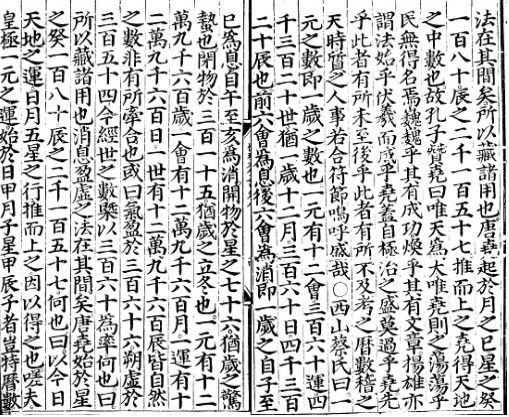 法在其間矣所以藏諸用也唐堯起於月之巳星之癸
一百八十辰之二千一百五十七推而上之堯得天地
之中數也故孔子贊堯曰唯天爲大唯堯則之蕩蕩乎
民無得名焉巍巍乎其有成功煥乎其有文章揚雄亦
謂法始乎伏羲而成乎堯蓋自極治之盛莫過乎堯先
乎此者有所未至後乎此者有所不及考之曆數稽之
天時質之人事若合符節嗚呼盛哉○西山蔡氏曰一
元之數即一歲之數也一元有十二會三百六十運四
千三百二十世猶一歲十二月三百六十日四千三百
二十辰也前六會爲息後六會爲消即一歲之自子至
巳爲息自午至亥爲消開物於星之七十六猶歲之驚
蟄也閉物於三百一十五猶歲之立冬也一元有十二
萬九千六百歲一會有十二萬九千六百月一運有十
二萬九千六百日一世有十二萬九千六百辰皆自然
之數非有所牽合也或曰氣盈於三百六十六朔虛於
三百五十四今經世之數槩以三百六十爲率何也曰
所以藏諸用也消息盈虛之法在其間矣唐堯始於星
之癸一百八十辰之二千一百五十七何也曰以今日
天地之運日月五星之行推而上之因以得之也嗟夫
皇極一元之運始於日甲月子星甲辰子者豈特曆數